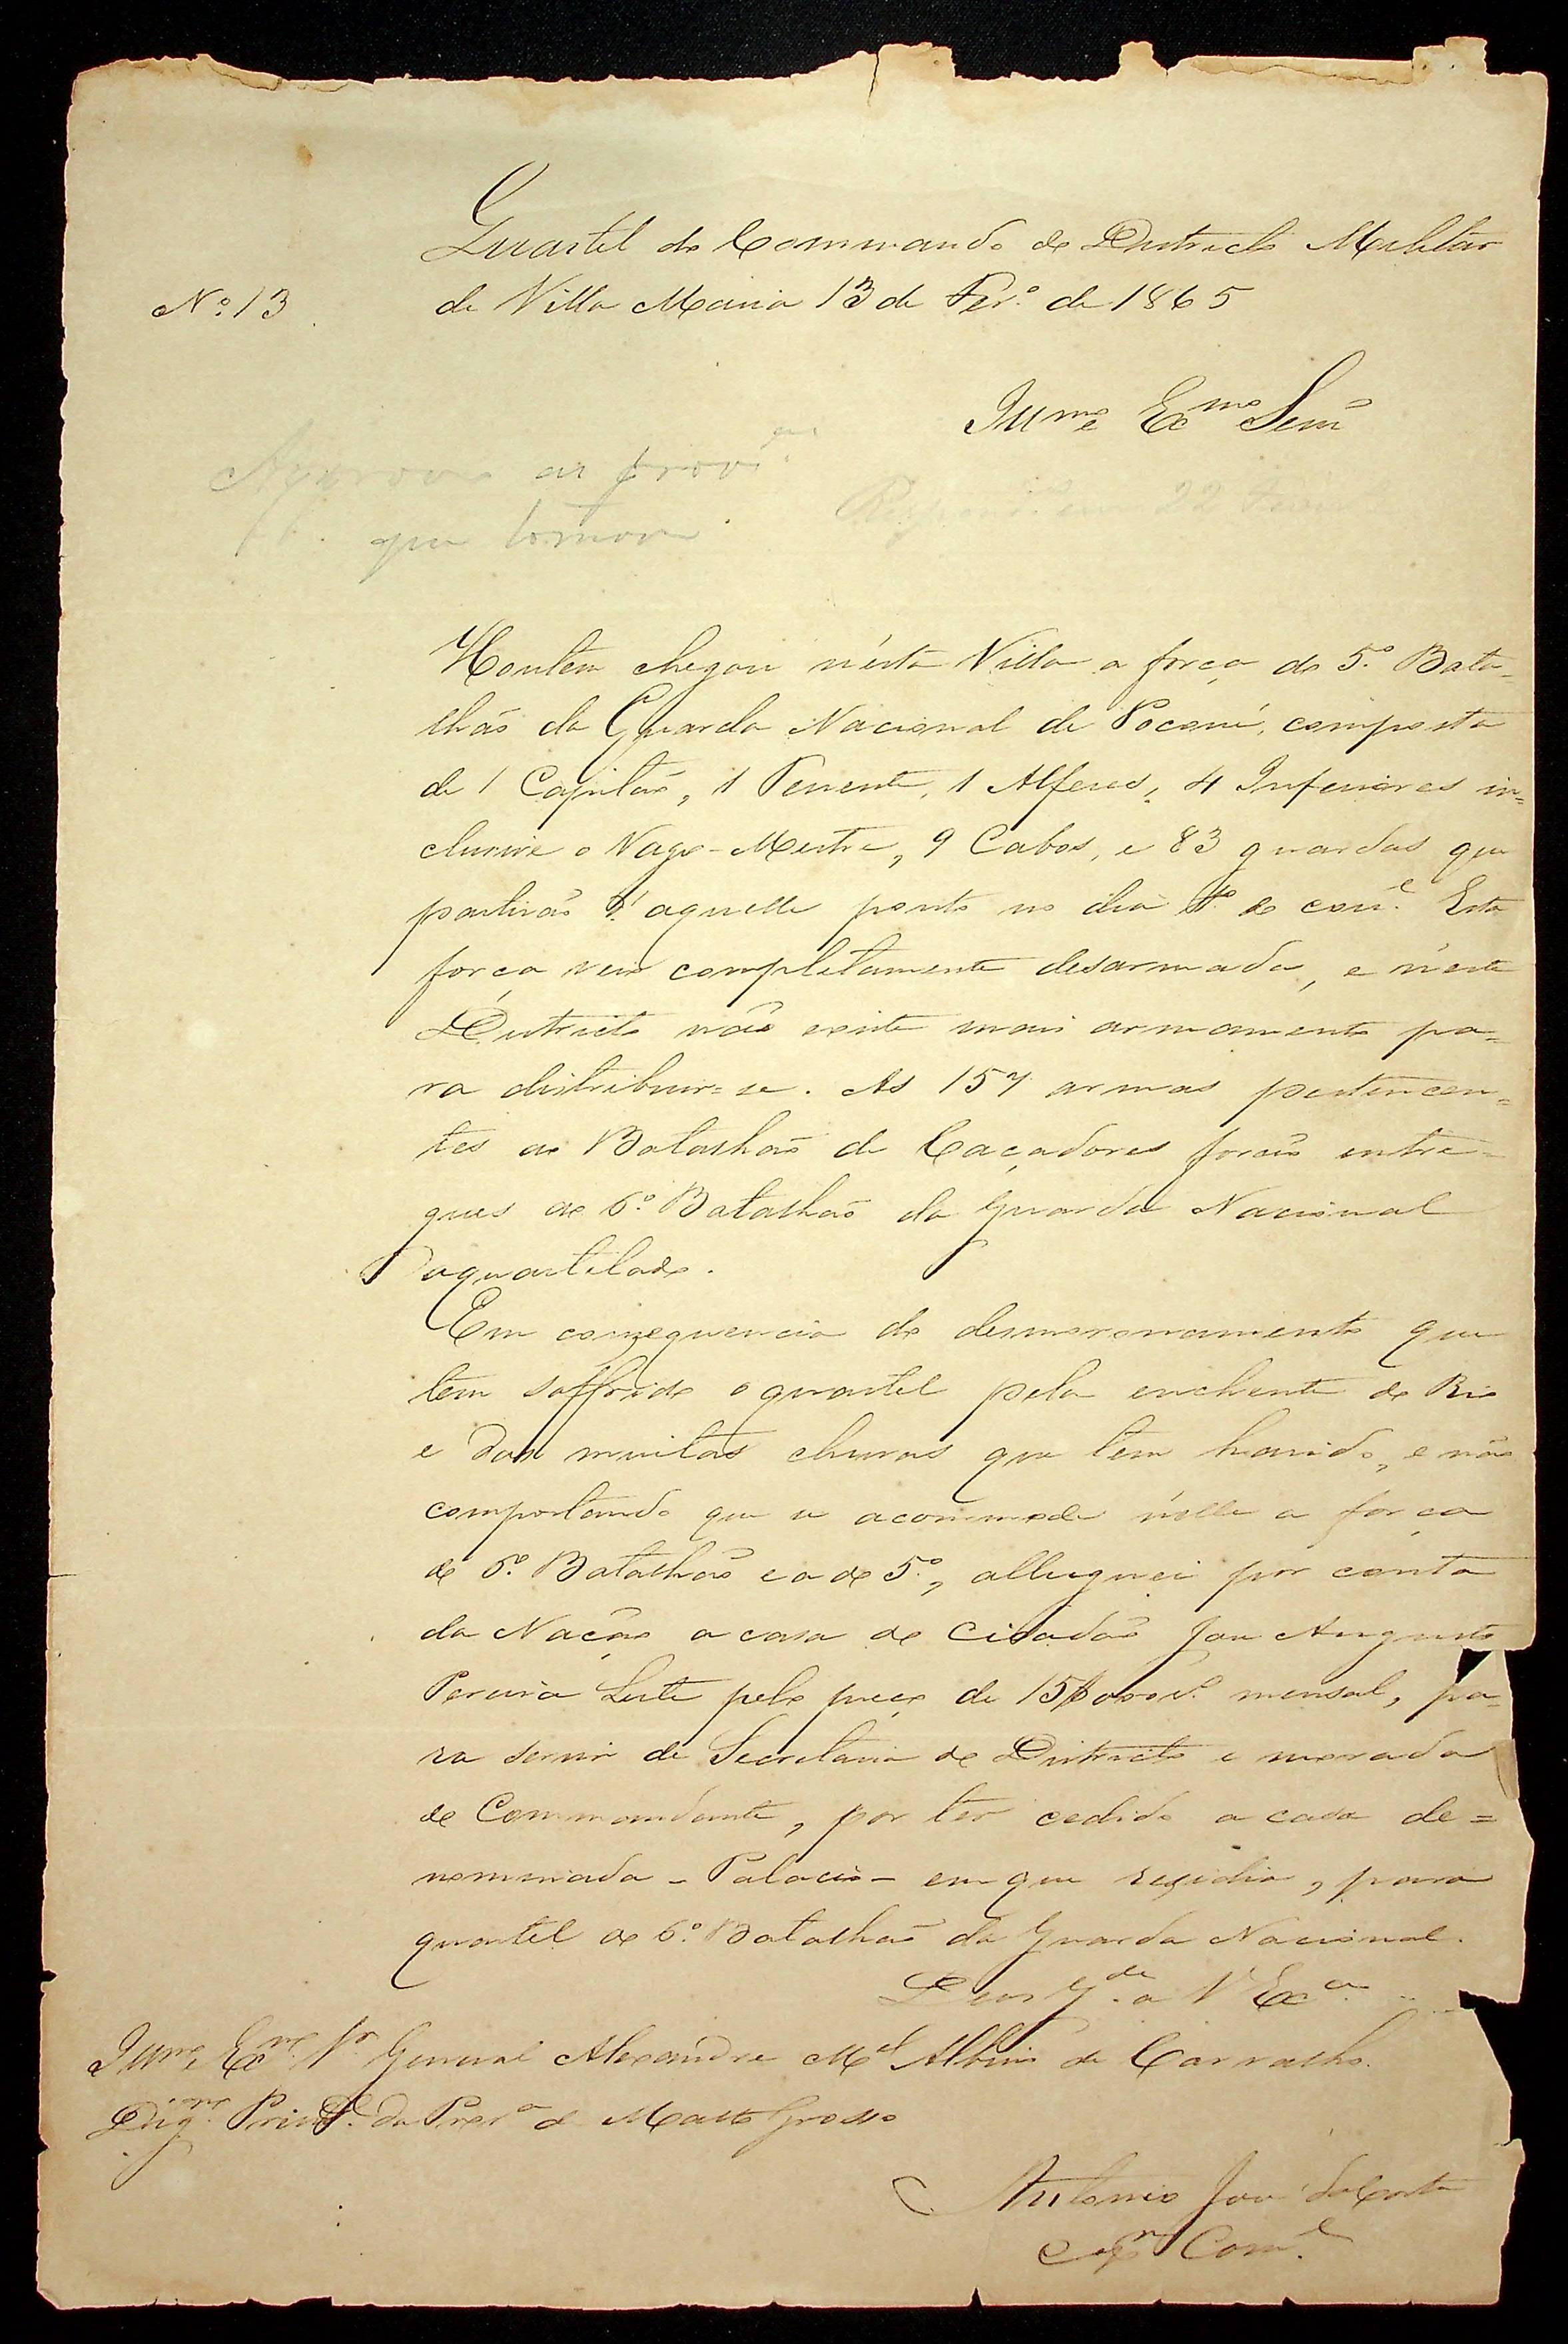 Quartel do Commando do Districto Militar
Nº 13 de Villa Maria 13 de Fevº de 1865
Illmº e Exmº Senr
Approvo as provi.as
que tomou.
Respond. em 22
Hontem chegou n'esta Villa a força do 5º Bata-
lhão da Guarda Nacional de Poconé, composta
de 1 Capitão, 1 Tenente, 1 Alferes, 4 Inferiores in=
clusive o Vago-Mestre, 9 Cabos, e 83 guardas que
partirão d'aquelle ponto no dia 1º do corre. Esta
força vem completamente desarmada, e n'este
Districto não existe mais armamento pa=
ra distribuir=se. As 157 armas pertencen=
tes ao Batalhão de Caçadores forão entre=
gues ao 6º Batalhão da Guarda Nacional
aquartelado.
Em consequencia do desmoronamento que
tem soffrido o quartel pela enchente do Rio
e das muitas chuvas que tem havido, e não
comportando que se acommode n'elle a força
do 6º Batalhão e a do 5º, alluguei por conta
da Nação a casa do Cidadão José Augusto
Pereira Leite pelo preço de 15$000 rs mensal, pa=
ra servir de Secretaria do Districto e morada
do Commandante, por ter cedido a casa de=
nominada - Palacio - em que rezidia, para
quartel do 6º Batalhão da Guarda Nacional.
Deos Gde a V Exca
Illmº e Exmº Sr General Alexandre Mel Albino de Carvalho.
Digmº Presid.e da Prova de Matto Grosso
Antonio José da Costa
Capm Come